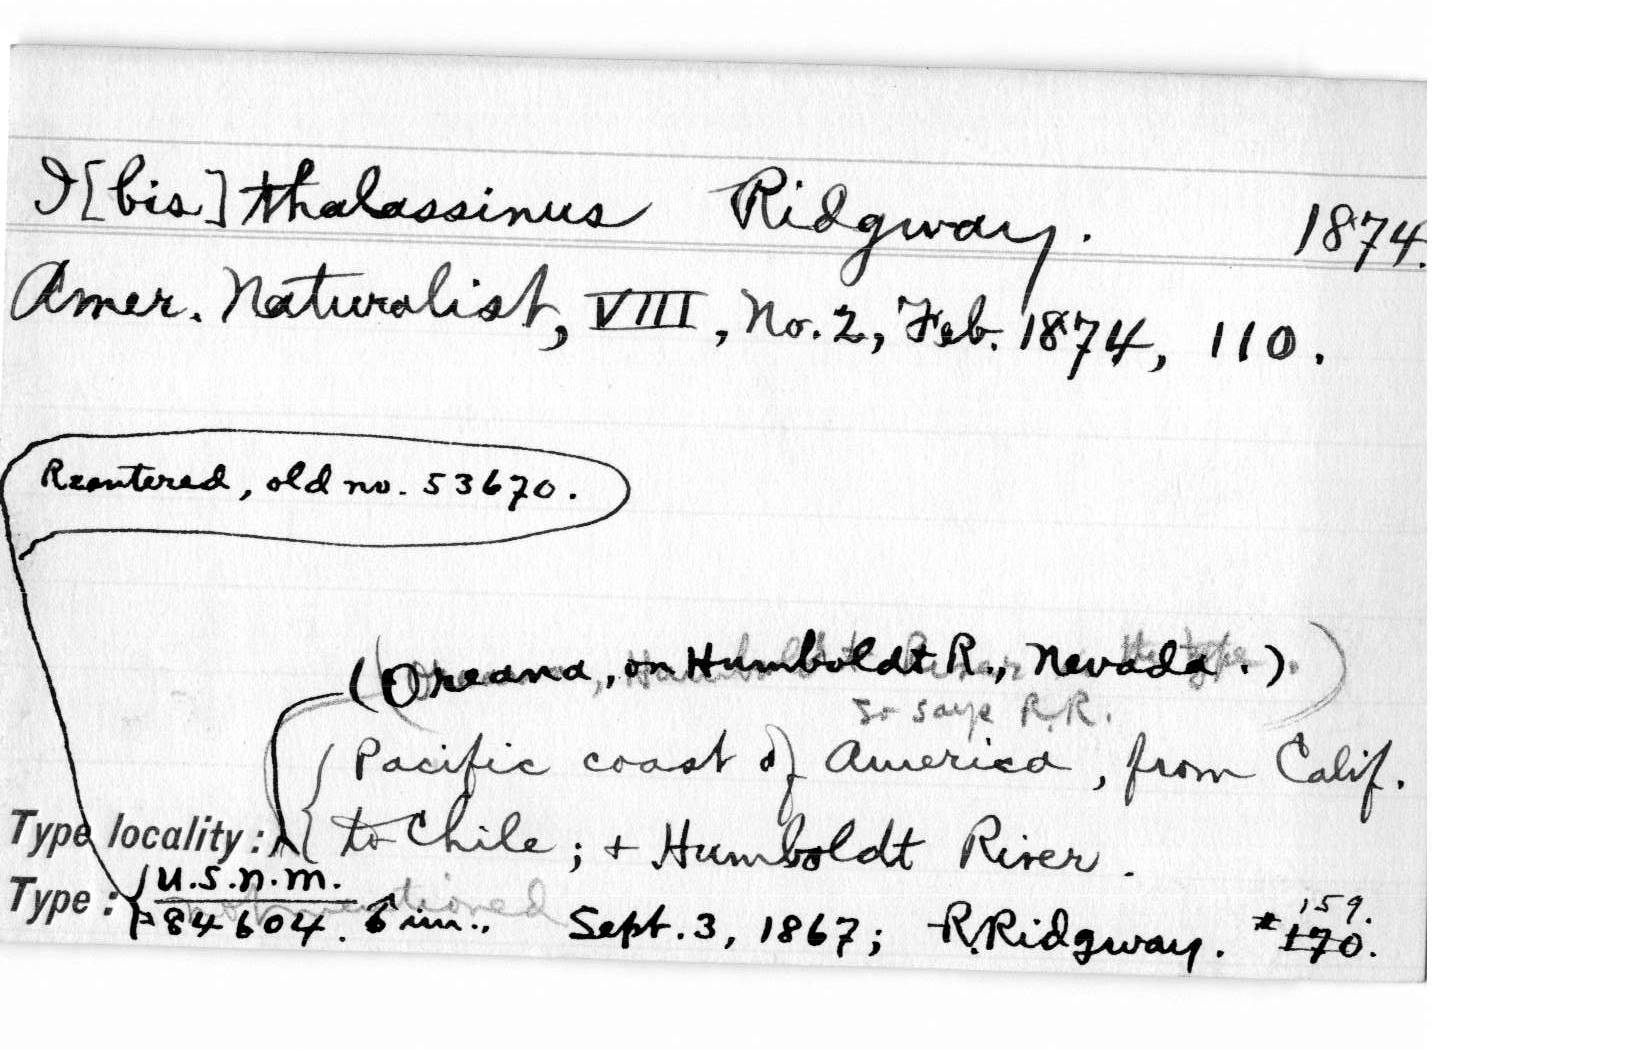 I[bis] thalassinus Ridgway. 1874.
Amer. Naturalist, VIII, No. 2, Feb. 1874, 110.
Reentered, old no. 53670.
(Oreana, on Humboldt R., Nevada.)
so says R.R.
Pacific coast of America, from Calif.
Type locality: to Chile; + Humboldt River.
Type: U.S.N.M. 159.
84604. ♂ im., Sept. 3, 1867; R. Ridgway. # 170.
not mentioned